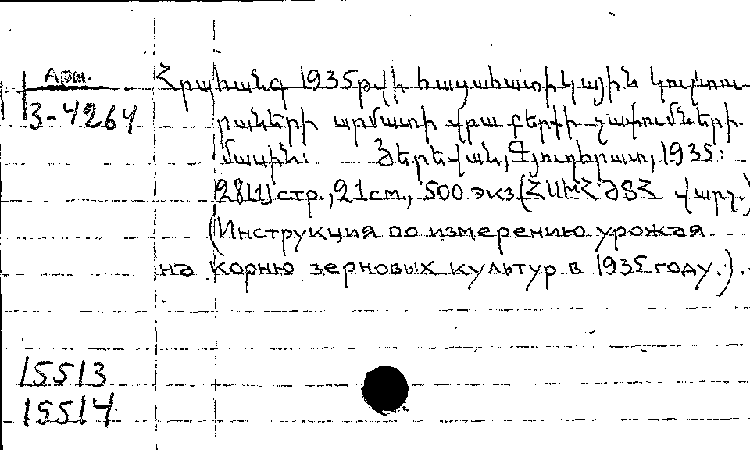 Арм.
3-4264
Հրահանգ 1935 թվի հացահատիկային կուլտու
րաների արմատի վրա բերքի չափումների
մասին: Յերեվան, Գյուղհրատ, 1935:
28[1] стр., 21 см., 500 экз. (ՀՍԽՀ ՀՅՀ վարչ.)
(Инструкция по измерению урожая
на корню зерновых культур в 1935 году.).
15513
15514